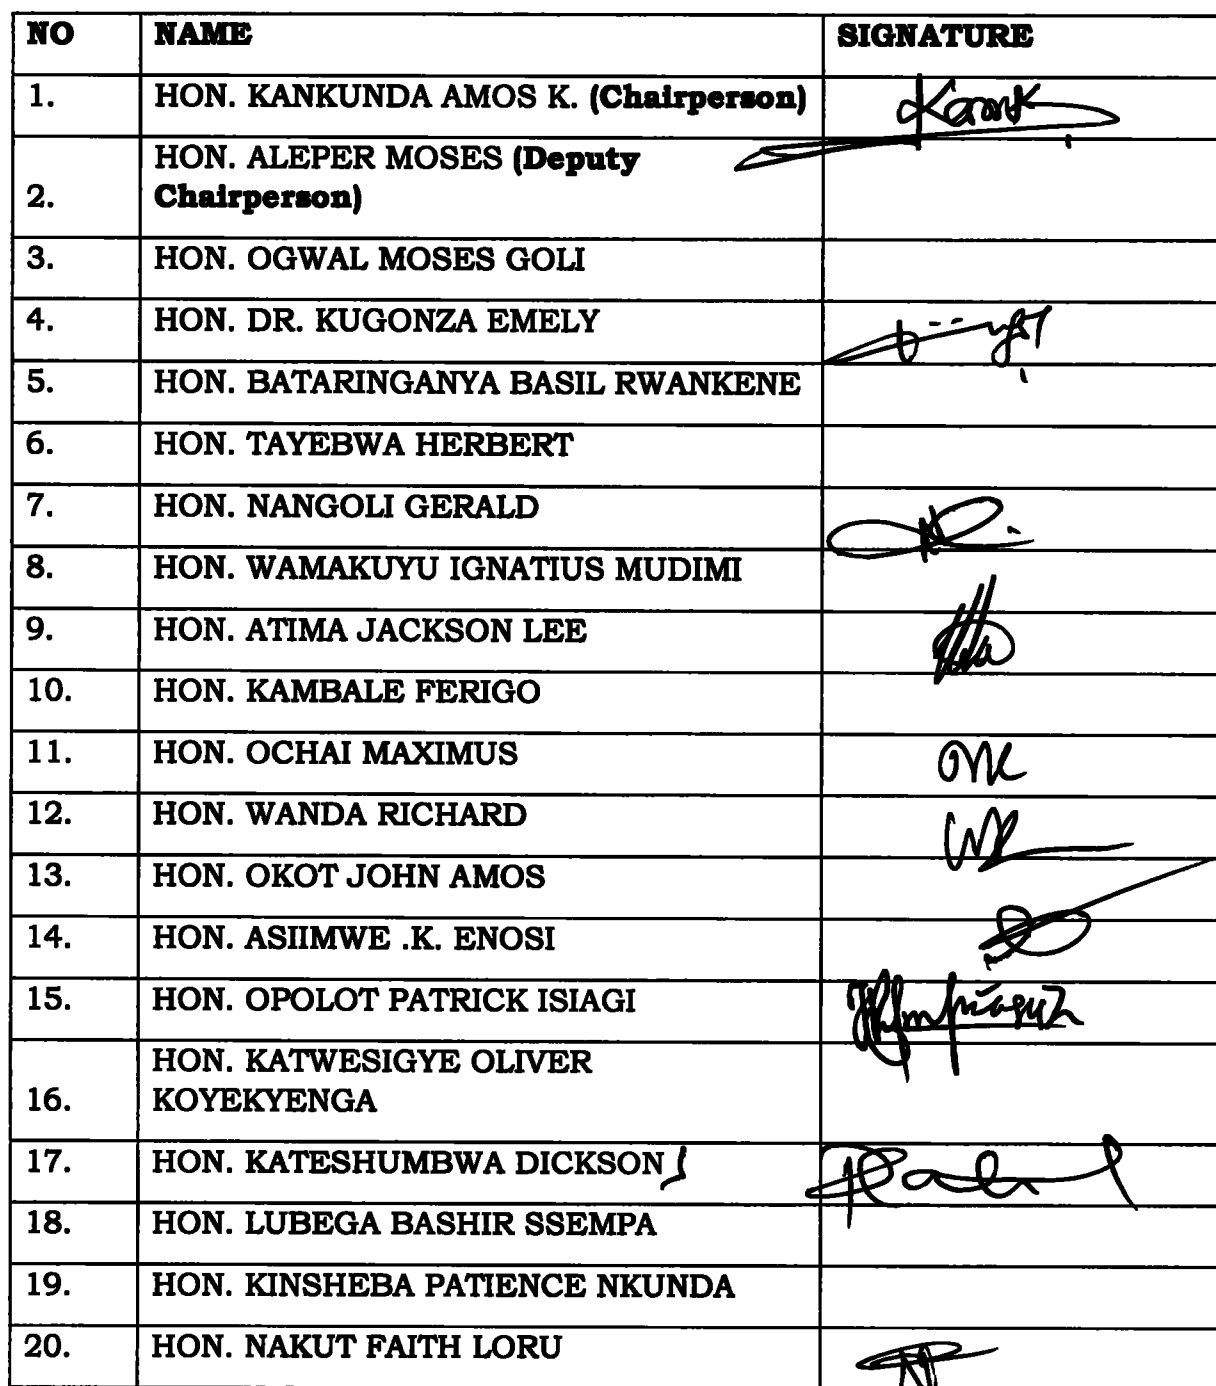 NO NAME SIGNATURE
1. HON. KANKUNDA AMOS K. (Chairperson)
HON. ALEPER MOSES (Deputy
2. Chairperson)
3. HON. OGWAL MOSES GOLI
4. HON. DR. KUGONZA EMELY
5. HON. BATARINGANYA BASIL RWANKENE
6. HON. TAYEBWA HERBERT
7. HON. NANGOLI GERALD
8. HON. WAMAKUYU IGNATIUS MUDIMI
9. HON. ATIMA JACKSON LEE
10. HON. KAMBALE FERIGO
11. HON. OCHAI MAXIMUS
12. HON. WANDA RICHARD
13. HON. OKOT JOHN AMOS
14. HON. ASIIMWE .K. ENOSI
15. HON. OPOLOT PATRICK ISIAGI
HON. KATWESIGYE OLIVER
16. KOYEKYENGA
17. HON. KATESHUMBWA DICKSON
18. HON. LUBEGA BASHIR SSEMPA
19. HON. KINSHEBA PATIENCE NKUNDA
20. HON. NAKUT FAITH LORU